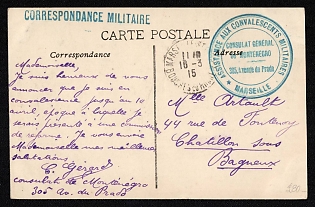 CORRESPONDANCE MILITAIRE
CARTE POSTALE
Correspondance
Adresse
Mademoiselle,
Je suis heureux de vous
annoncer que je suis en
convalescence jusqu'au 10
avril, époque à laquelle je
serais présenté à une commission
de reforme. Je vous envoie
Mademoiselle mes meilleures
salutations
E. Gérard
consulat de Monténégro
305 av. du Prado
MARSEILLE
18-3
15
ASSISTANCE AUX CONVALESCENTS MILITAIRES
CONSULAT GÉNÉRAL
DE MONTENEGRO
305, Avenue du Prado
MARSEILLE
Mlle Artault
44 rue de Fontenay
Chatillon sous
Bagneux